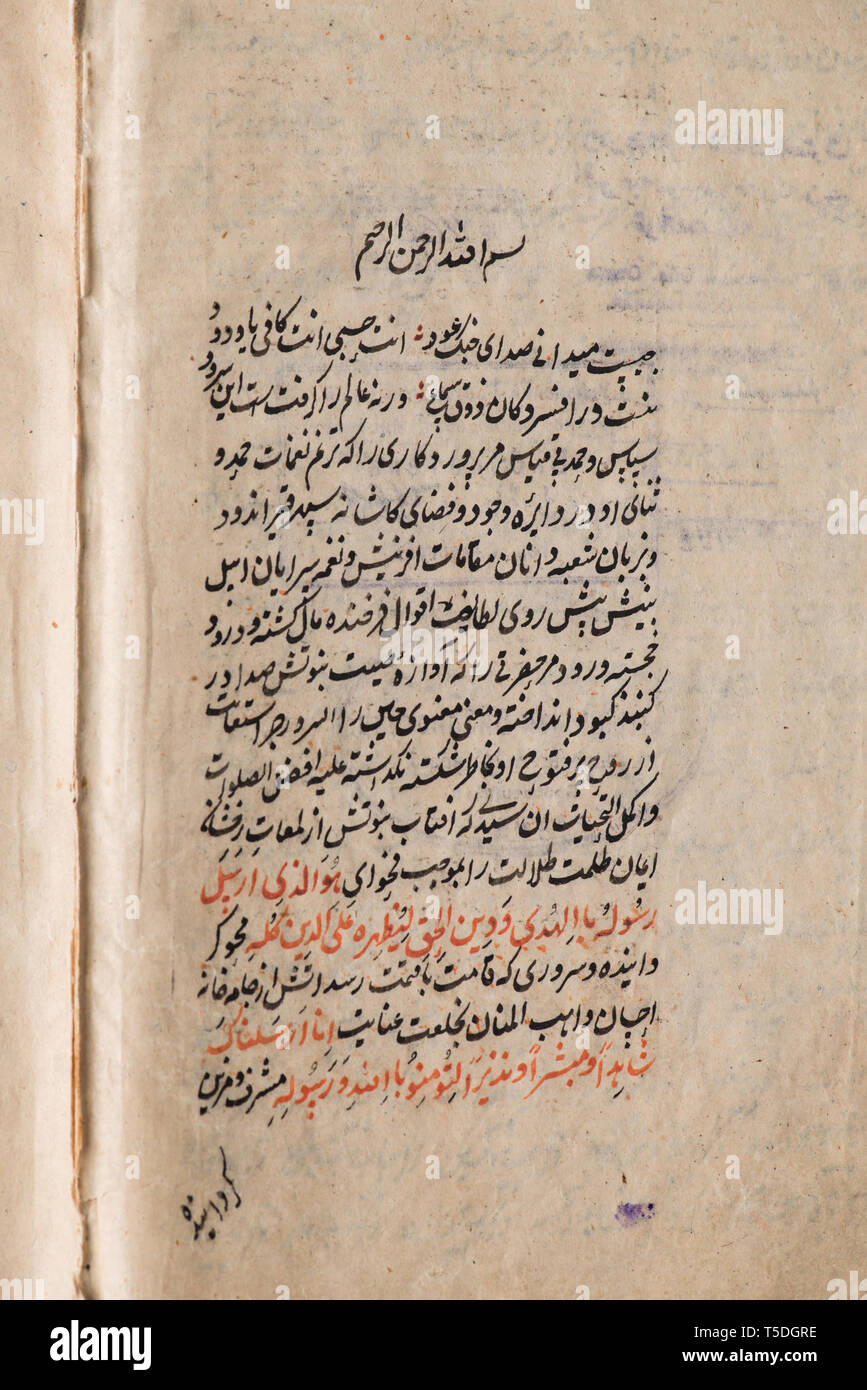 بسم الله الرحمن الرحیم
چیست میدانی صدای چنک عود انت حسبی انت کافی یا ودود
نیست در افسردکان ذوق سماع ورنه عالم را کرفتست این سرود
سپاس و حمد بی قیاس مر پروردکاری را که ترنم نغمات حمد و
ثنای او در دایره وجود و فضای کاشانه سپهر قیر اندود
و بزبان شعبه دانان مقامات افرینش و نغمه سرایان اهل
بینش پیش روی لطایف اقوال فرخنده مال کشته و درود
خجسته ورود مر حضرتی را که آوازه صیت نبوتش صدا در
کنبد کبود انداخته و معنی معنوی را
از روح پر فتوح او بخاطر شکسته نکذاشته علیه افضل الصلوات
و اکمل التحیات ان سیدی که افتاب نبوتش از لمعات رخشنده
ایمان ظلمت ظلالت را بموجب فحوای هُوَ الذی اَرسَلَ
رسُولهُ باالهُدی وَدین الحق لیُظهره عَلی الدین کُله محو کر
دانیده و سروری که قامت با قیمت رسداتش از جامه خانه
احسان واهب المنان بخلعت عنایت اِنا اَرسَلناکَ
شاهداً و مبشراً و نذیراً لتُومنوُ باالله وَرَسُولهِ مشرف و مزین
کردانیده
alamy
Image ID: T5DGRE
www.alamy.com